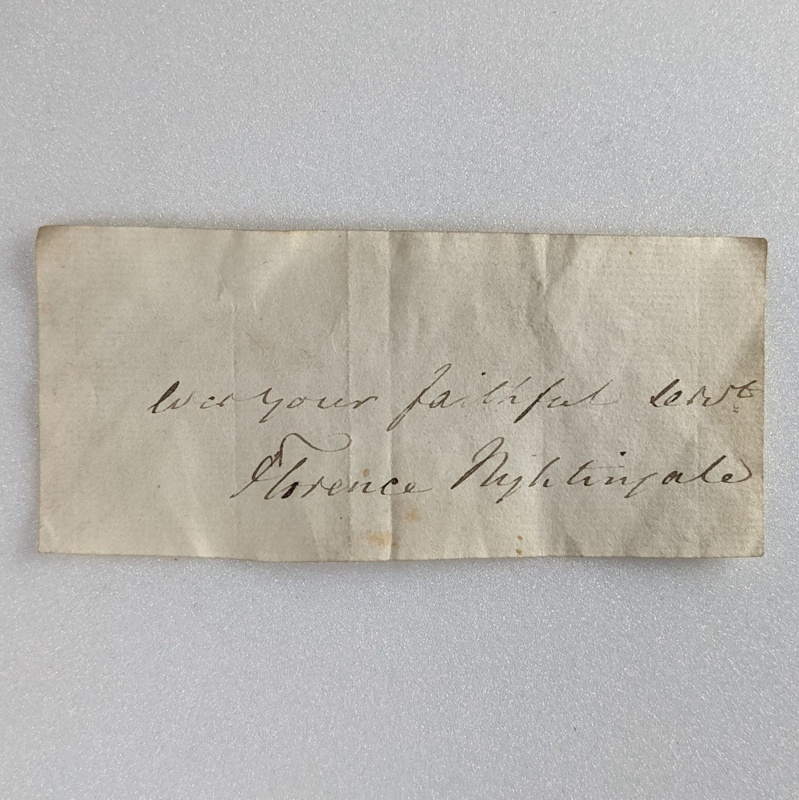 ever your faithful servt
Florence Nightingale